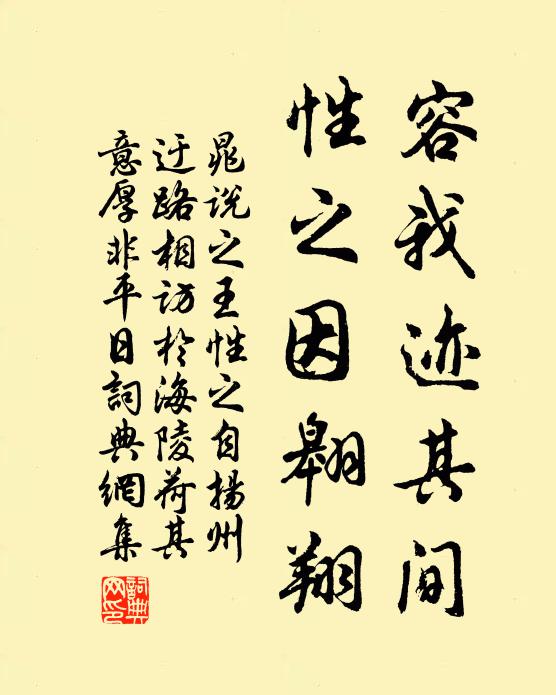 容我迹其间
性之因翱翔
晁说之王性之自揚州
迂路相访於海陵荷其
意厚非平日詞典網集
詞典网印